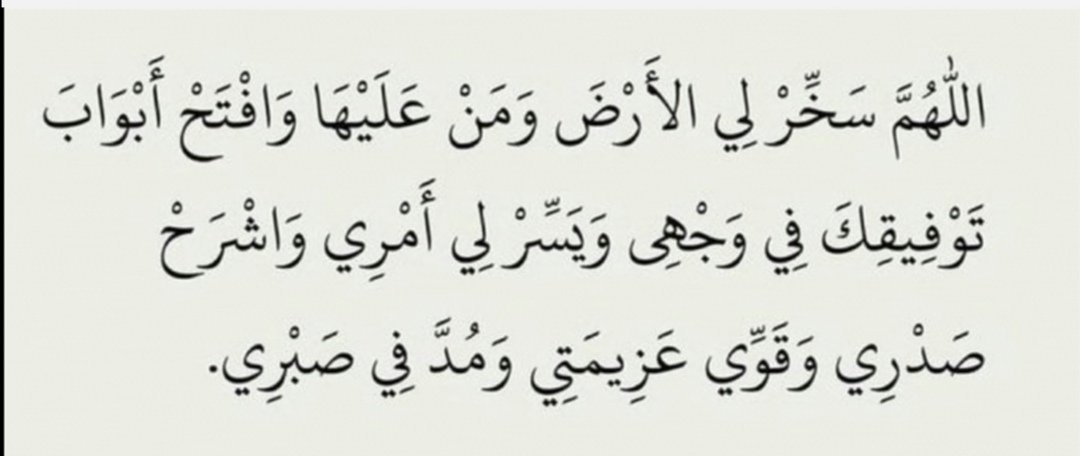 اللّٰهُمَّ سَخِّرْ لِي الأَرْضَ وَمَنْ عَلَيْهَا وَافْتَحْ أَبْوَابَ
تَوْفِيقِكَ فِي وَجْهِى وَيَسِّرْ لِي أَمْرِي وَاشْرَحْ
صَدْرِي وَقَوِّي عَزِيمَتِي وَمُدَّ فِي صَبْرِي.